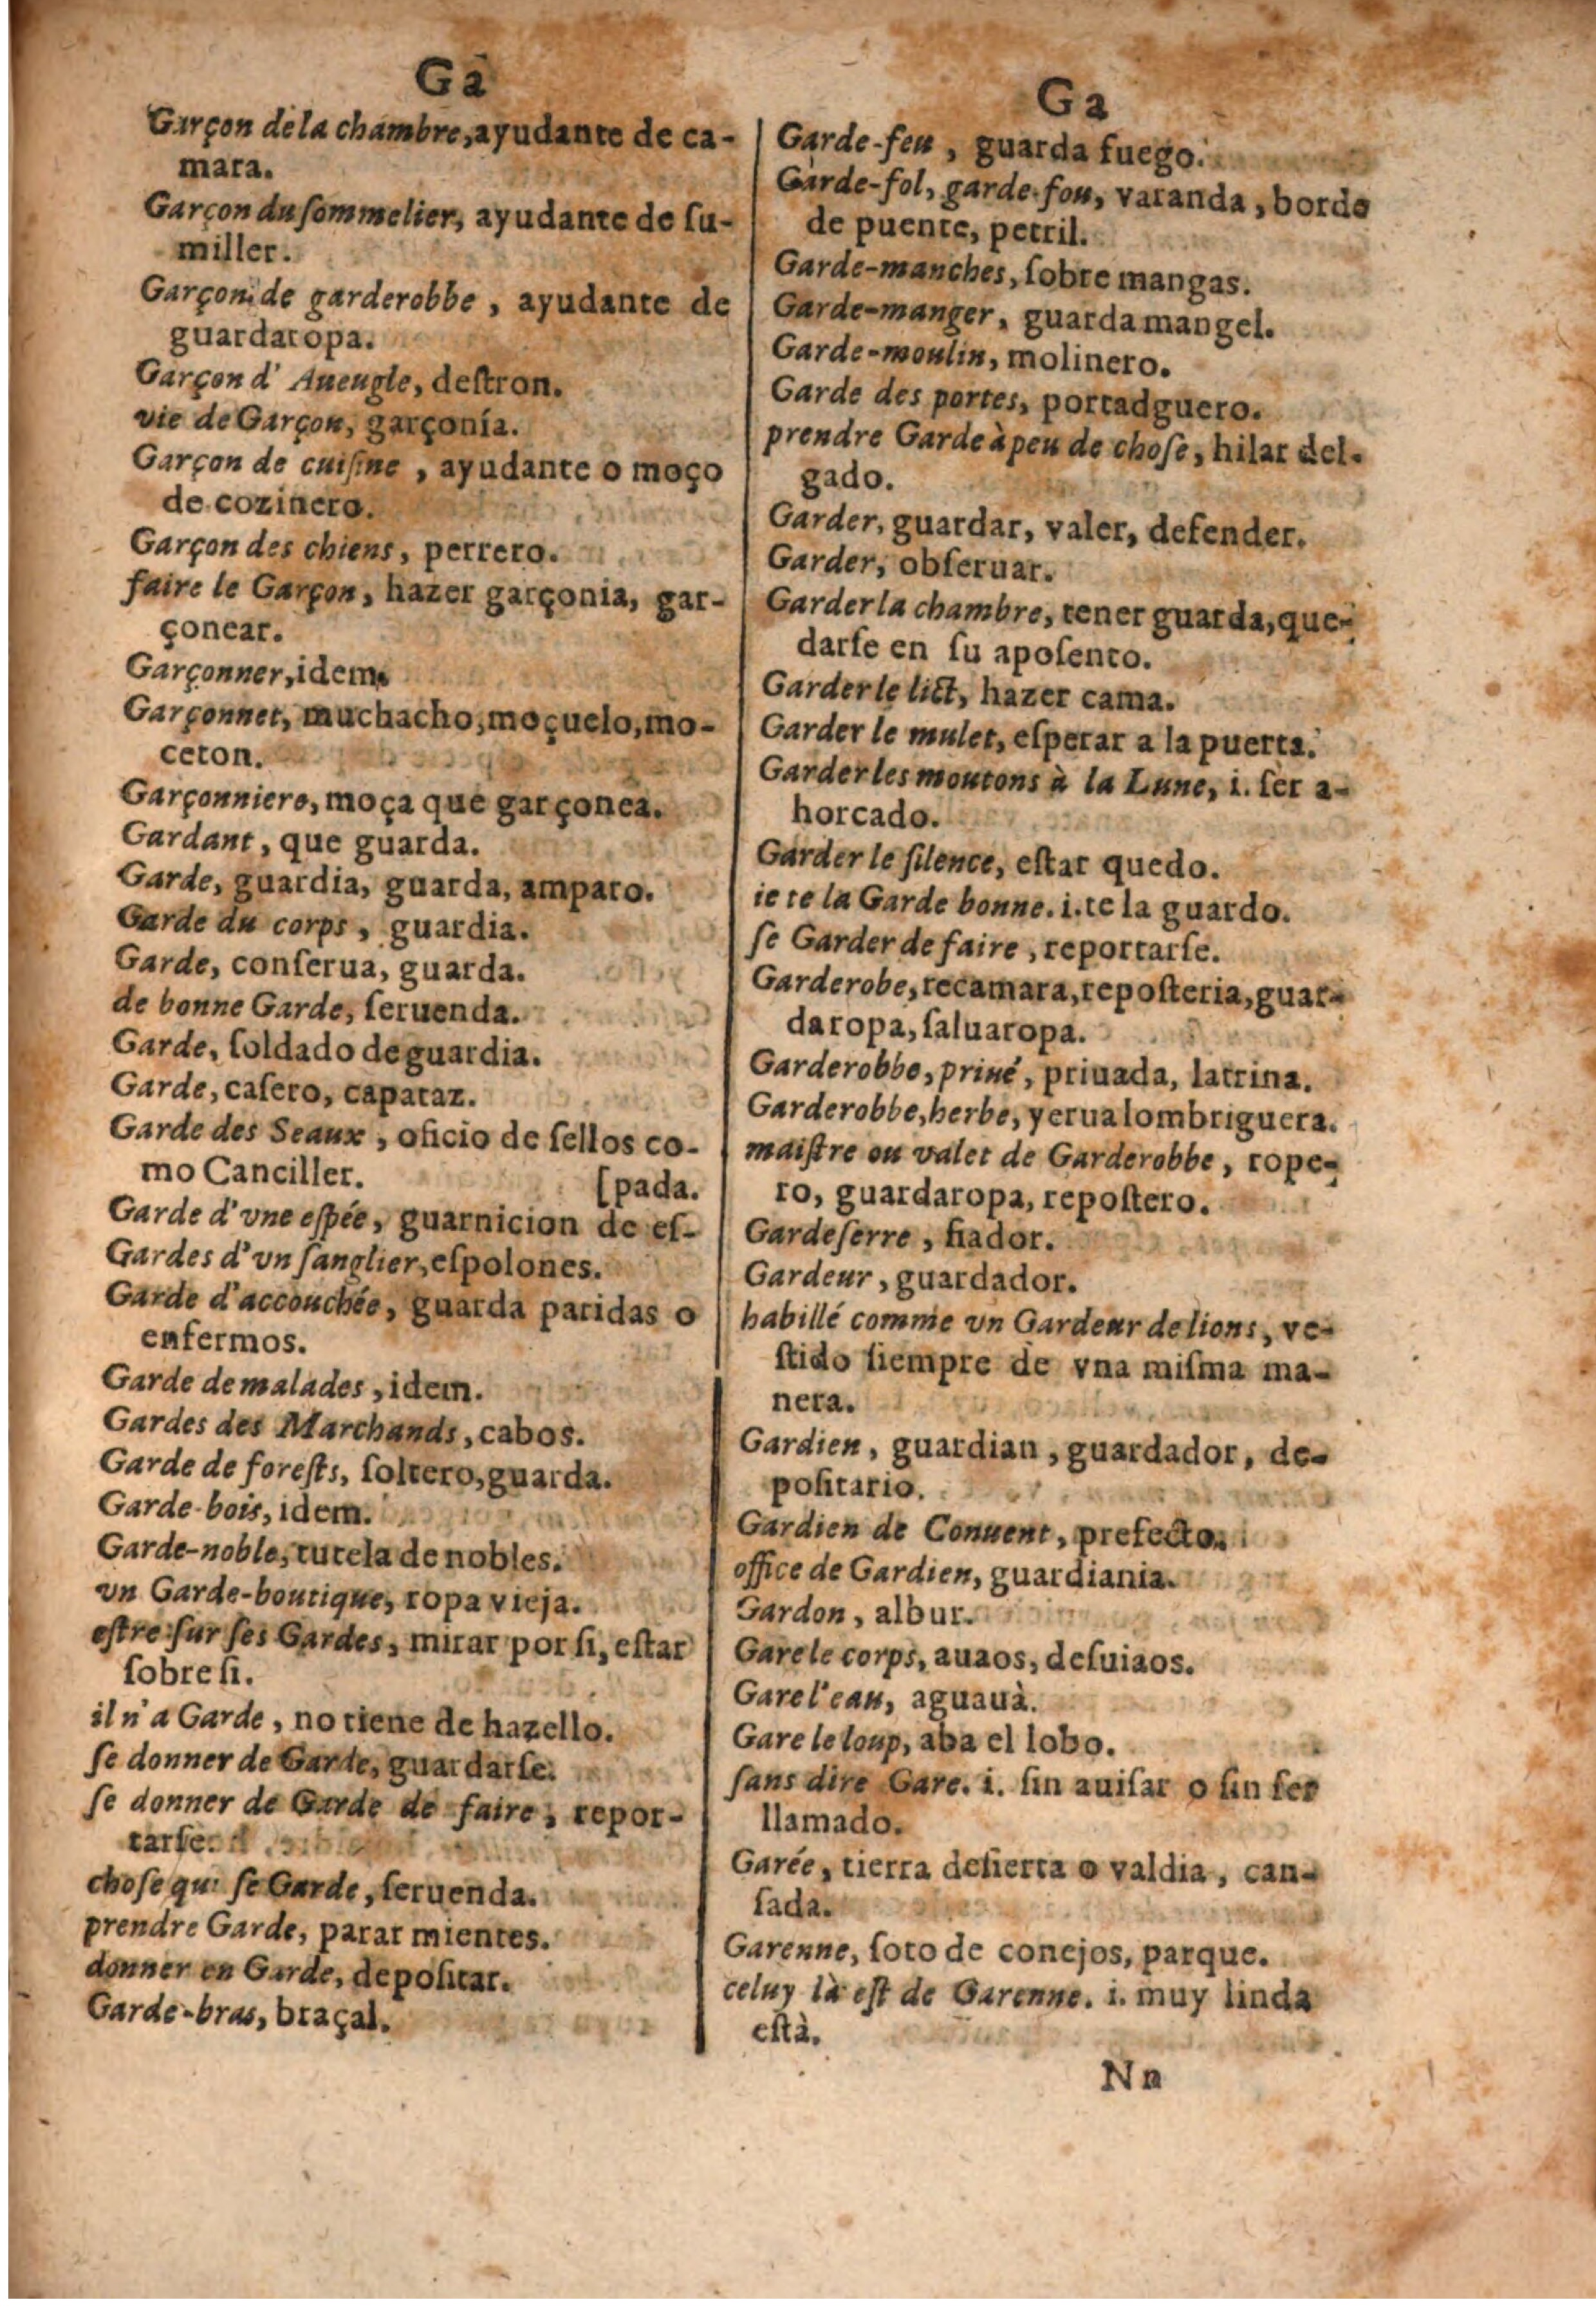 Ga
Garçon de la chambre, ayudante de ca-
mara.
Garçon du ſommelier, ayudante de ſu-
miller.
Garçon de garderobbe, ayudante de
guardaropa.
Garçon d' Aueugle, deſtron.
vie de Garçon, garçonía.
Garçon de cuiſine, ayudante o moço
de cozinero.
Garçon des chiens, perrero.
faire le Garçon, hazer garçonia, gar-
çonear.
Garçonner, idem.
Garçonnet, muchacho, moçuelo, mo-
ceton.
Garçonniere, moça que garçonea.
Gardant, que guarda.
Garde, guardia, guarda, amparo.
Garde du corps, guardia.
Garde, conſerua, guarda.
de bonne Garde, ſeruenda.
Garde, ſoldado de guardia.
Garde, caſero, capataz.
Garde des Seaux, oficio de ſellos co-
mo Canciller. [pada.
Garde d'vne eſpée, guarnicion de eſ-
Gardes d'vn ſanglier, eſpolones.
Garde d'accouchée, guarda paridas o
enfermos.
Garde de malades, idem.
Gardes des Marchands, cabos.
Garde de foreſts, ſoltero, guarda.
Garde-bois, idem.
Garde-noble, tutela de nobles.
vn Garde-boutique, ropa vieja.
eſtre ſur ſes Gardes, mirar por ſi, eſtar
ſobre ſi.
il n'a Garde, no tiene de hazello.
ſe donner de Garde, guardarſe.
ſe donner de Garde de faire, repor-
tarſe.
choſe qui ſe Garde, ſeruenda.
prendre Garde, parar mientes.
donner en Garde, depoſitar.
Garde-bras, braçal.
Ga
Garde-feu, guarda fuego.
Garde-fol, garde-fou, varanda, borde
de puente, petril.
Garde-manches, ſobre mangas.
Garde-manger, guarda mangel.
Garde-moulin, molinero.
Garde des portes, portadguero.
prendre Garde à peu de choſe, hilar del-
gado.
Garder, guardar, valer, defender.
Garder, obſeruar.
Garder la chambre, tener guarda, que-
darſe en ſu apoſento.
Garder le lict, hazer cama.
Garder le mulet, eſperar a la puerta.
Garder les moutons à la Lune, i. ſer a-
horcado.
Garder le ſilence, eſtar quedo.
ie te la Garde bonne. i. te la guardo.
ſe Garder de faire, reportarſe.
Garderobe, recamara, repoſteria, guar-
daropa, ſaluaropa.
Garderobbe, priué, priuada, latrina.
Garderobbe, herbe, yerua lombriguera.
maiſtre ou valet de Garderobbe, rope-
ro, guardaropa, repoſtero.
Gardeſerre, fiador.
Gardeur, guardador.
habillé comme vn Gardeur de lions, ve-
ſtido ſiempre de vna miſma ma-
nera.
Gardien, guardian, guardador, de-
poſitario.
Gardien de Conuent, prefecto.
office de Gardien, guardiania.
Gardon, albur.
Gare le corps, auaos, deſuiaos.
Gare l'eau, aguauà.
Gare le loup, aba el lobo.
ſans dire Gare. i. ſin auiſar o ſin ſer
llamado.
Garée, tierra deſierta o valdia, can-
ſada.
Garenne, ſoto de conejos, parque.
celuy là eſt de Garenne. i. muy linda
eſtà.
Nn